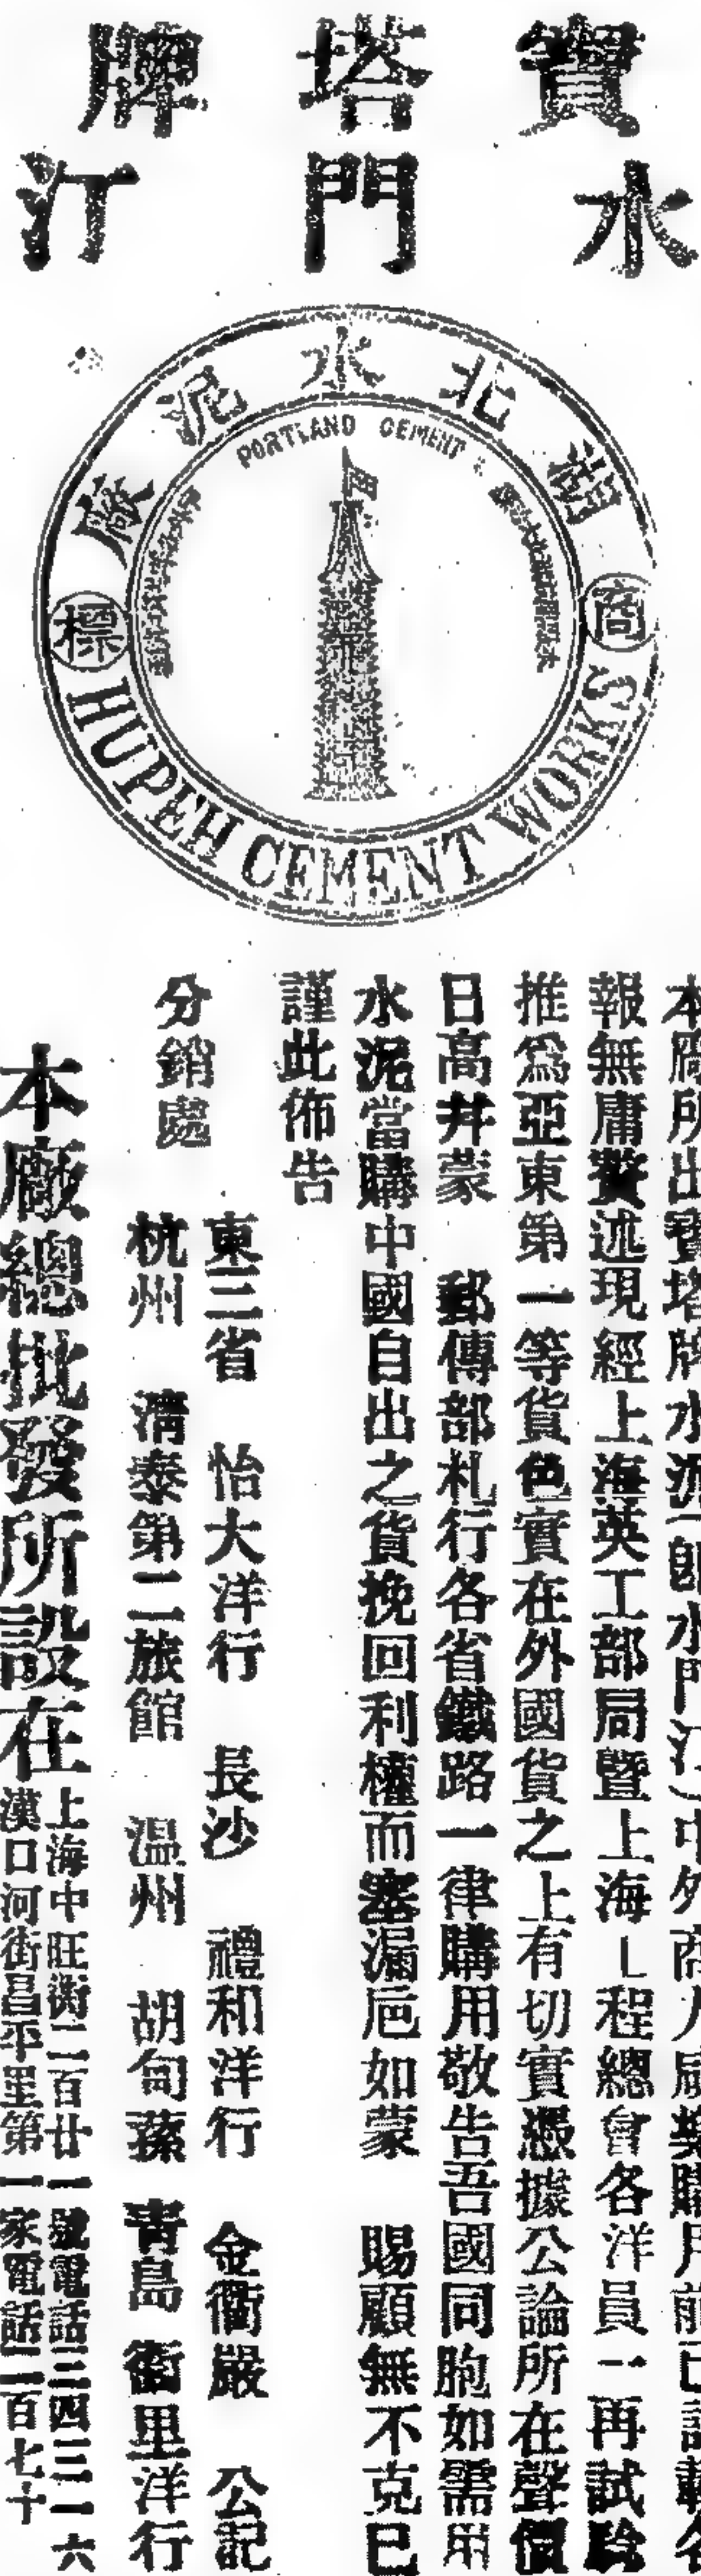 寶塔牌
水門汀
湖北水泥廠
PORTLAND CEMENT
商標
HUPEH CEMENT WORKS
本廠所出寶塔牌水泥(卽水門汀)中外商人咸樂購用前已記載各
報無庸贅述現經上海英工部局暨上海工程總會各洋員一再試驗
推爲亞東第一等貨色實在外國貨之上有切實憑據公論所在聲價
日高幷蒙 郵傳部札行各省鐵路一律購用敬告吾國同胞如需用
水泥當購中國自出之貨挽回利權而塞漏巵如蒙 賜顧無不克己
謹此佈告
分銷處
東三省 怡大洋行 長沙 禮和洋行 金衢嚴 公記
杭州 清泰第二旅館 温州 胡旬蓀 青島 衞里洋行
本廠總批發所設在
上海中旺街二百廿一號電話三四三一六
漢口河街昌平里第一家電話二百七十